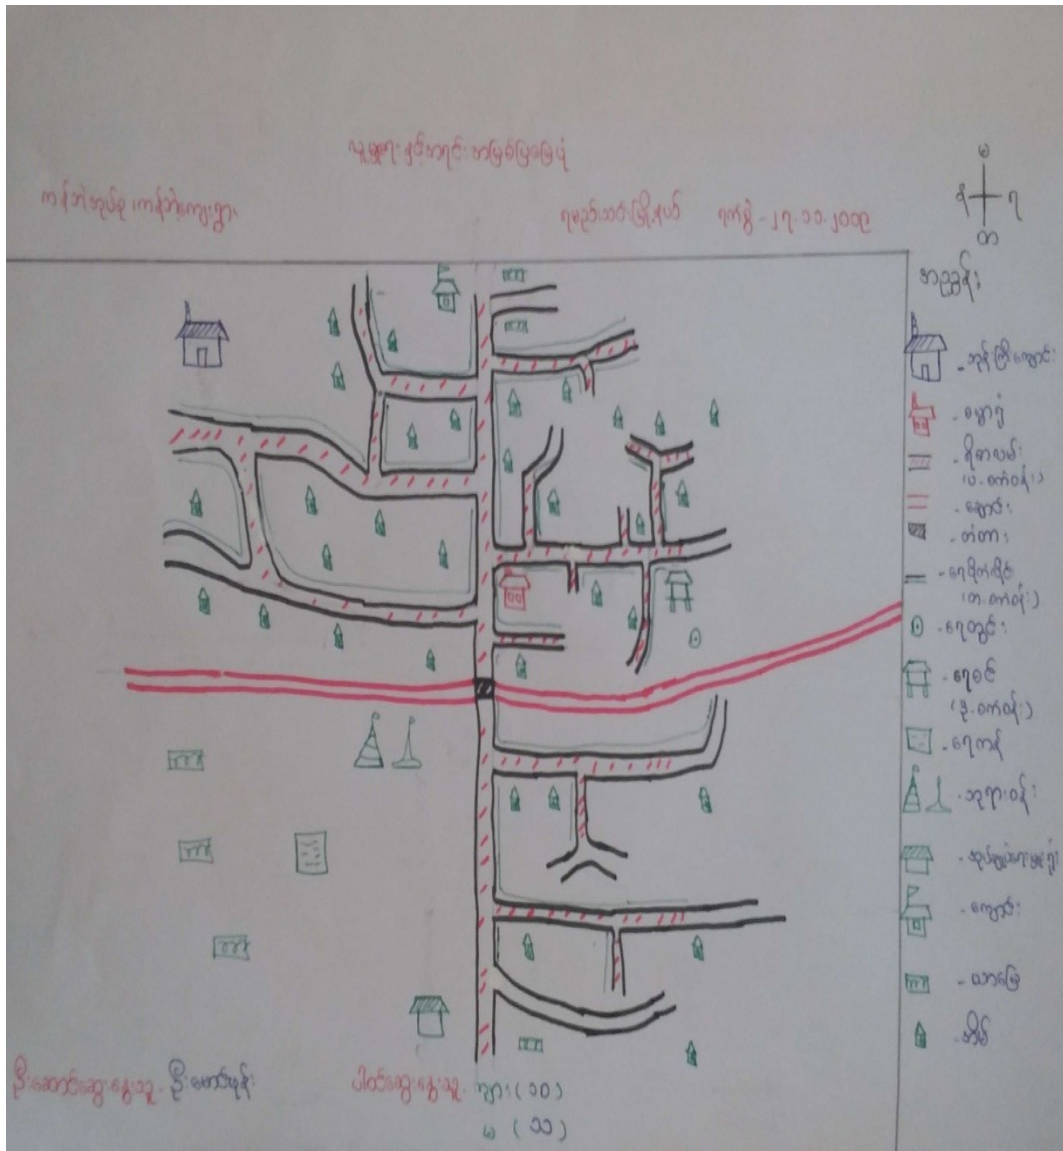 လူမှုရေးနှင့်အရင်းအမြစ်ပြမြေပုံ
ကန်ဘဲအုပ်စု၊ကန်ဘဲကျေးရွာ၊
ရမည်းသင်းမြို့နယ် ရက်စွဲ - ၂၇.၁၁.၂၀၁၉
မ
န ရ
တ
အညွှန်း
- ဘုန်းကြီးကျောင်း
- ဓမ္မာရုံ
- ရိုစာလမ်း
- ချောင်း
- တံတား
- ရေပိုက်လိုင်း
- ရေတွင်း
- ရေစင်
- ရေကန်
- ဘုရားဝန်း
- ကျောင်း
- ယာမြေ
- အိမ်
ဦးဆောင်ဆွေးနွေးသူ - ဦးမောင်ဖုန်း
ပါဝင်ဆွေးနွေးသူ - ကျား (၁၀)
မ (၁၁)